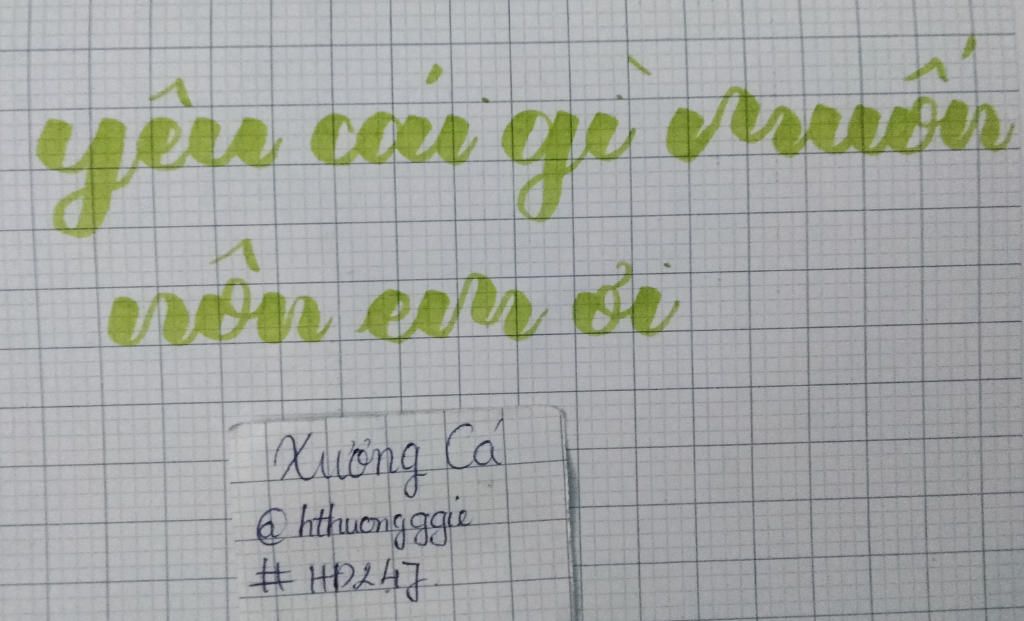 yêu cái gì muốn
nôn em ơi
Xương Cá
@hthuongggie
#HD247